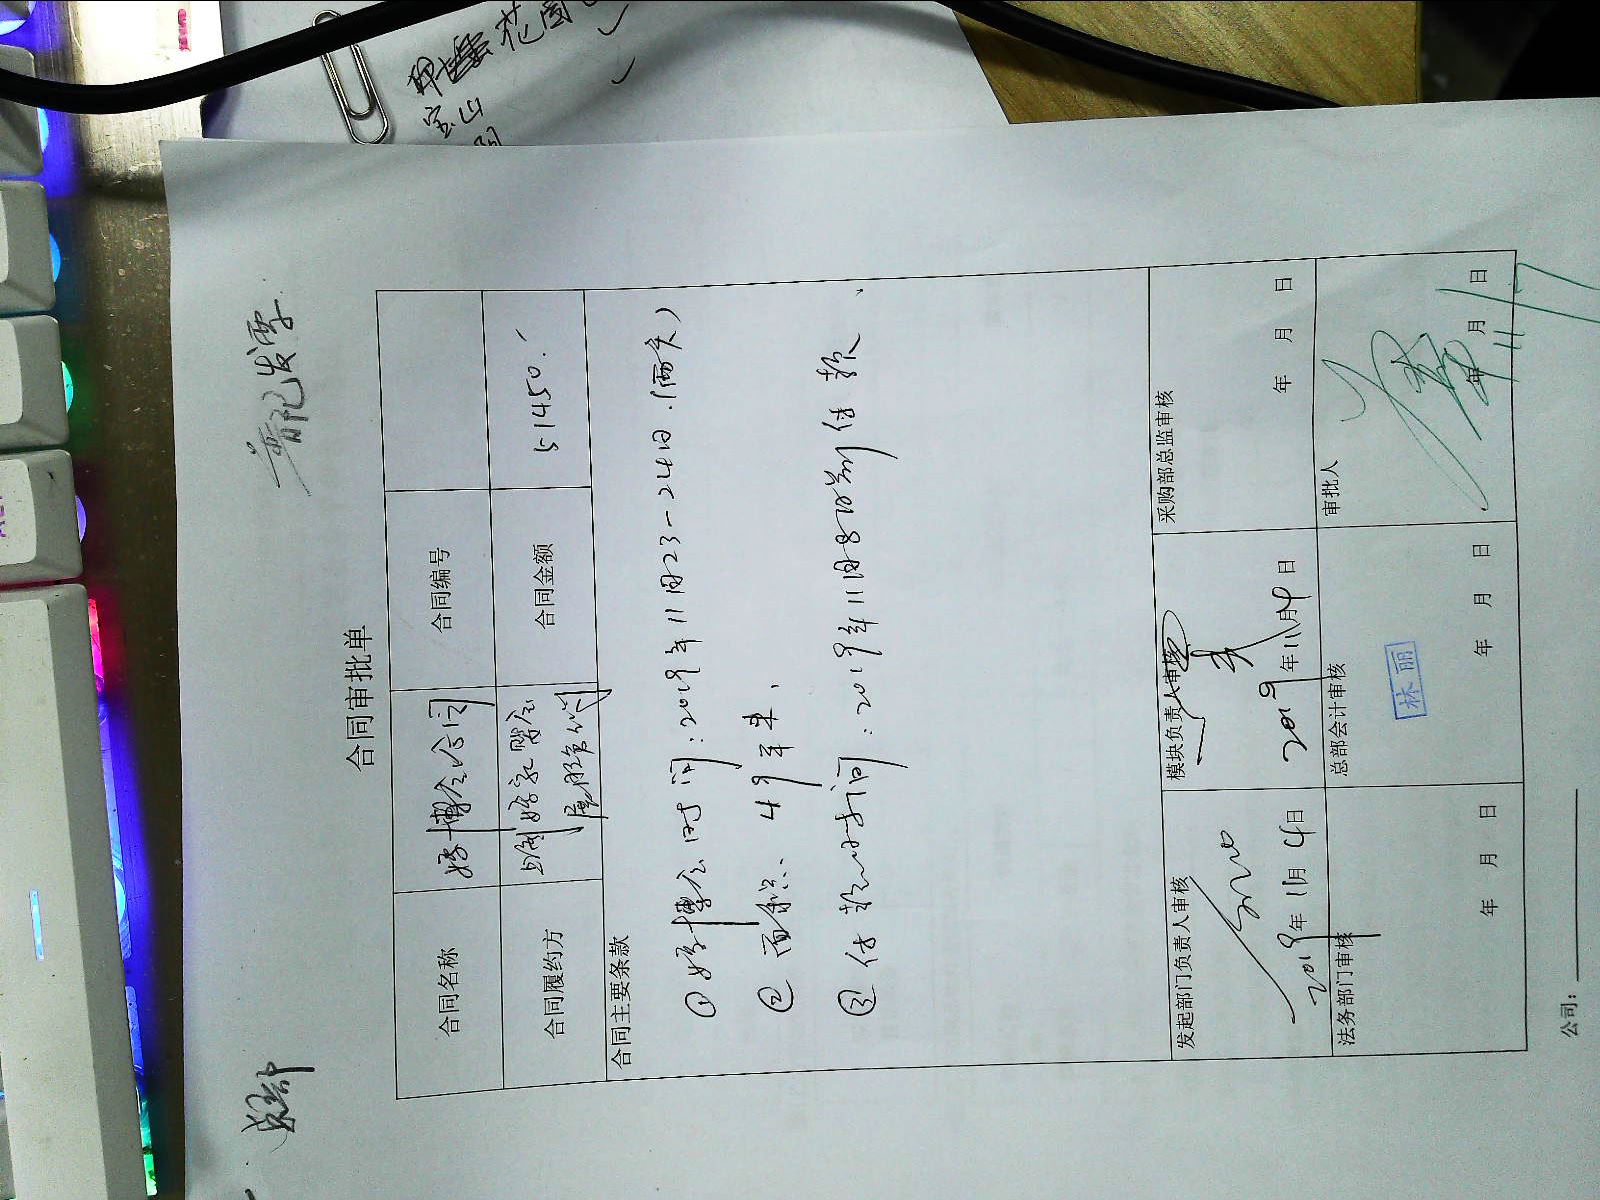 甲 花园
宝山
普记发票
总部
合同审批单
合同名称 婚博会合同 合同编号
合同履约方 合同金额 51450.
合同主要条款
① 婚博会时间：2019年11月23-24日.(两天)
② 面积：49平米.
③ 付款时间：2019年11月8日前付款、
发起部门负责人审核 模块负责人审核 采购部总监审核
2019年11月4日 2019年11月4日 年 月 日
法务部门审核 总部会计审核 审批人
林丽
年 月 日 年 月 日 年 月 日
11/7
公司：